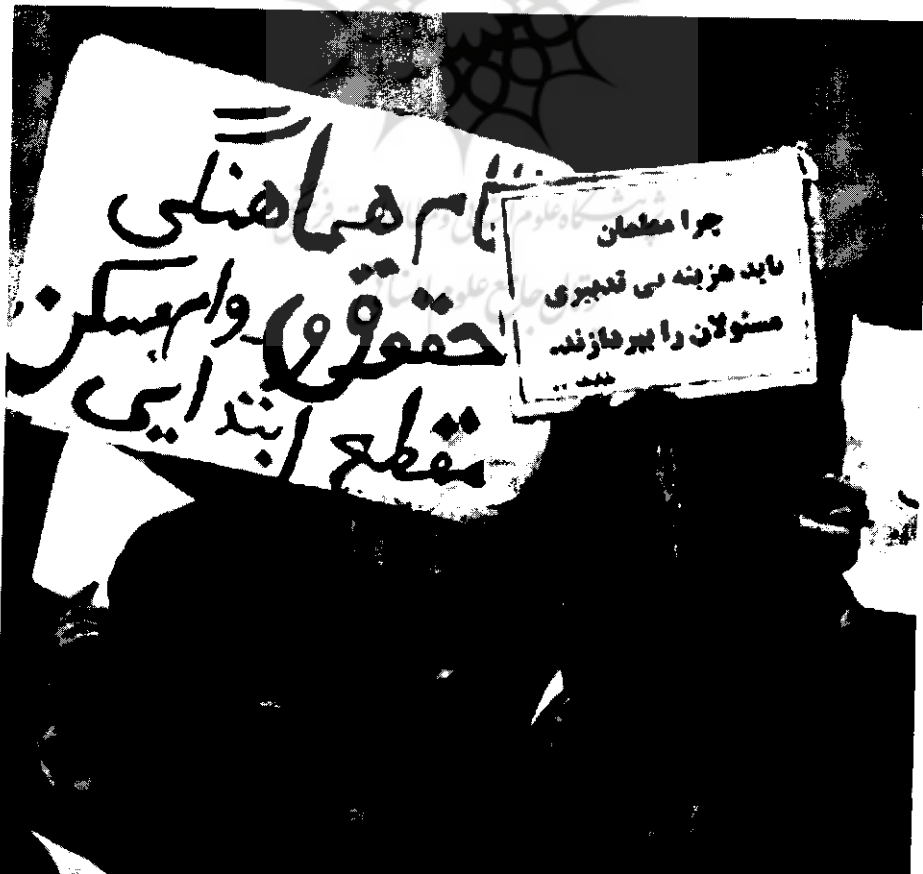 هماهنگی
حقوق و وام مسکن
مقطع ابتدایی
چرا معلمان
باید هزینه بی تدبیری
مسئولان را بپردازند.
پژوهشگاه علوم انسانی و مطالعات فرهنگی
پرتال جامع علوم انسانی